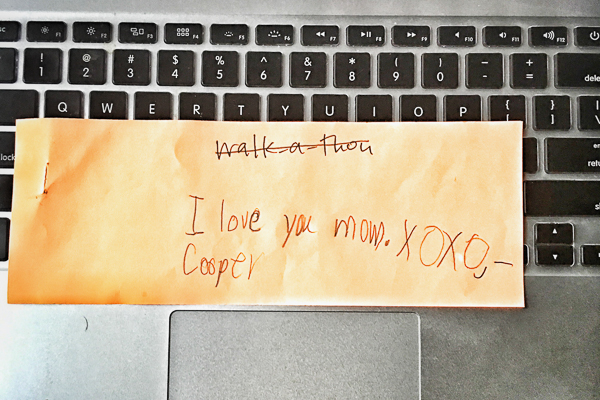 F1 F2 F3 F4 F5 F6 F7 F8 F9 F10 F11 F12
! @ # $ % ^ & * ( ) _ +
1 2 3 4 5 6 7 8 9 0 - =
Q W E R T Y U I O P { }
walk-a-thon
I love you mom. XOXO,—
Cooper